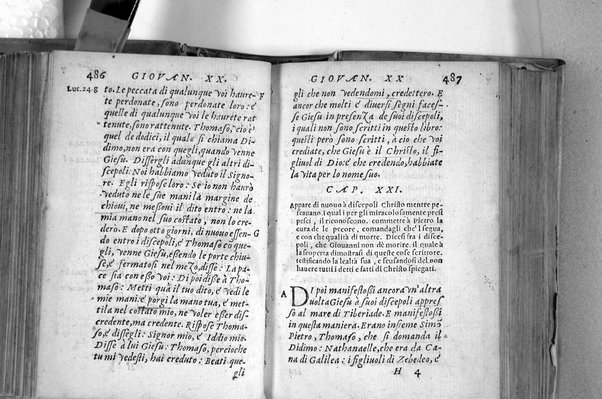 486 GIOVAN. XX.
Luc. 24. g
to. Le peccata di qualunque voi haure-
te perdonate, sono perdonate loro: &
quelle di qualunque voi le haurete rat
tenute, sono rattenute. Thomaso, ciò è
quel de dodici, il quale si chiama Di
dimo, non era con quegli, quando venne
Giesu. Dissergli adunque gli altri di-
scepoli: Noi habbiamo veduto il Signo-
re. Egli rispose loro: Se io non haurò
veduto ne le sue mani la margine de
chioui, ne messoui il dito entro: ne la
mia mano nel suo costato, non lo cre-
derò. E dopo otto giorni, di nuouo essen-
do entro i discepoli, & Thomaso cō que-
gli, venne Giesu, essendo le porte chiu-
se, & fermatosi nel mezo, disse: La pa-
ce sia con esso voi: Di poi disse à Tho-
maso: Metti quà il tuo dito, & vedi le
mie mani: & porgi la mano tua, & met-
tila nel costato mio, ne voler esser dis-
credente, ma credente. Rispose Thoma-
so, & dissegli: Signor mio, & Iddio mio.
Disse à lui Giesu: Thomaso, percioche
tu mi vedesti, hai creduto: Beati que-
gli
F
G
GIOVAN. XX 487
gli che non vedendomi, credettero. E
ancor che molti & diuersi segni faces-
se Giesu in presenza de suoi discepoli,
i quali non sono scritti in questo libro:
questi però sono scritti, à ciò che voi
crediate, che Giesu è il Christo, il fi-
gliuol di Dio: & che credendo, habbiate
la vita per lo nome suo.
CAP. XXI.
Appare di nuouo à discepoli Christo mentre pe-
scauano i qual i per gli miracolosamente presi
pesci, il riconoscono. commette à Pietro la
cura de le pecore, comandagli che'l segua,
e con che qualità di morire. Dicesi fra i disce-
poli, che Giouanni non dè morire. il quale à
la scoperta dimostrasi di queste cose scrittore.
testificando la lealtà sua, & scusandosi del non
hauere tutti i detti e fatti di Christo spiegati.
A
DI poi manifestossi ancora vn'altra
uolta Giesu à suoi discepoli appres
so al mare di Tiberiade. E manifestossi
in questa maniera. Erano insieme Simō
Pietro, Thomaso, che si domanda il
Didimo: Nathanaelle, che era da Ca-
na di Galilea: i figliuoli di Zebedeo, &
H 4